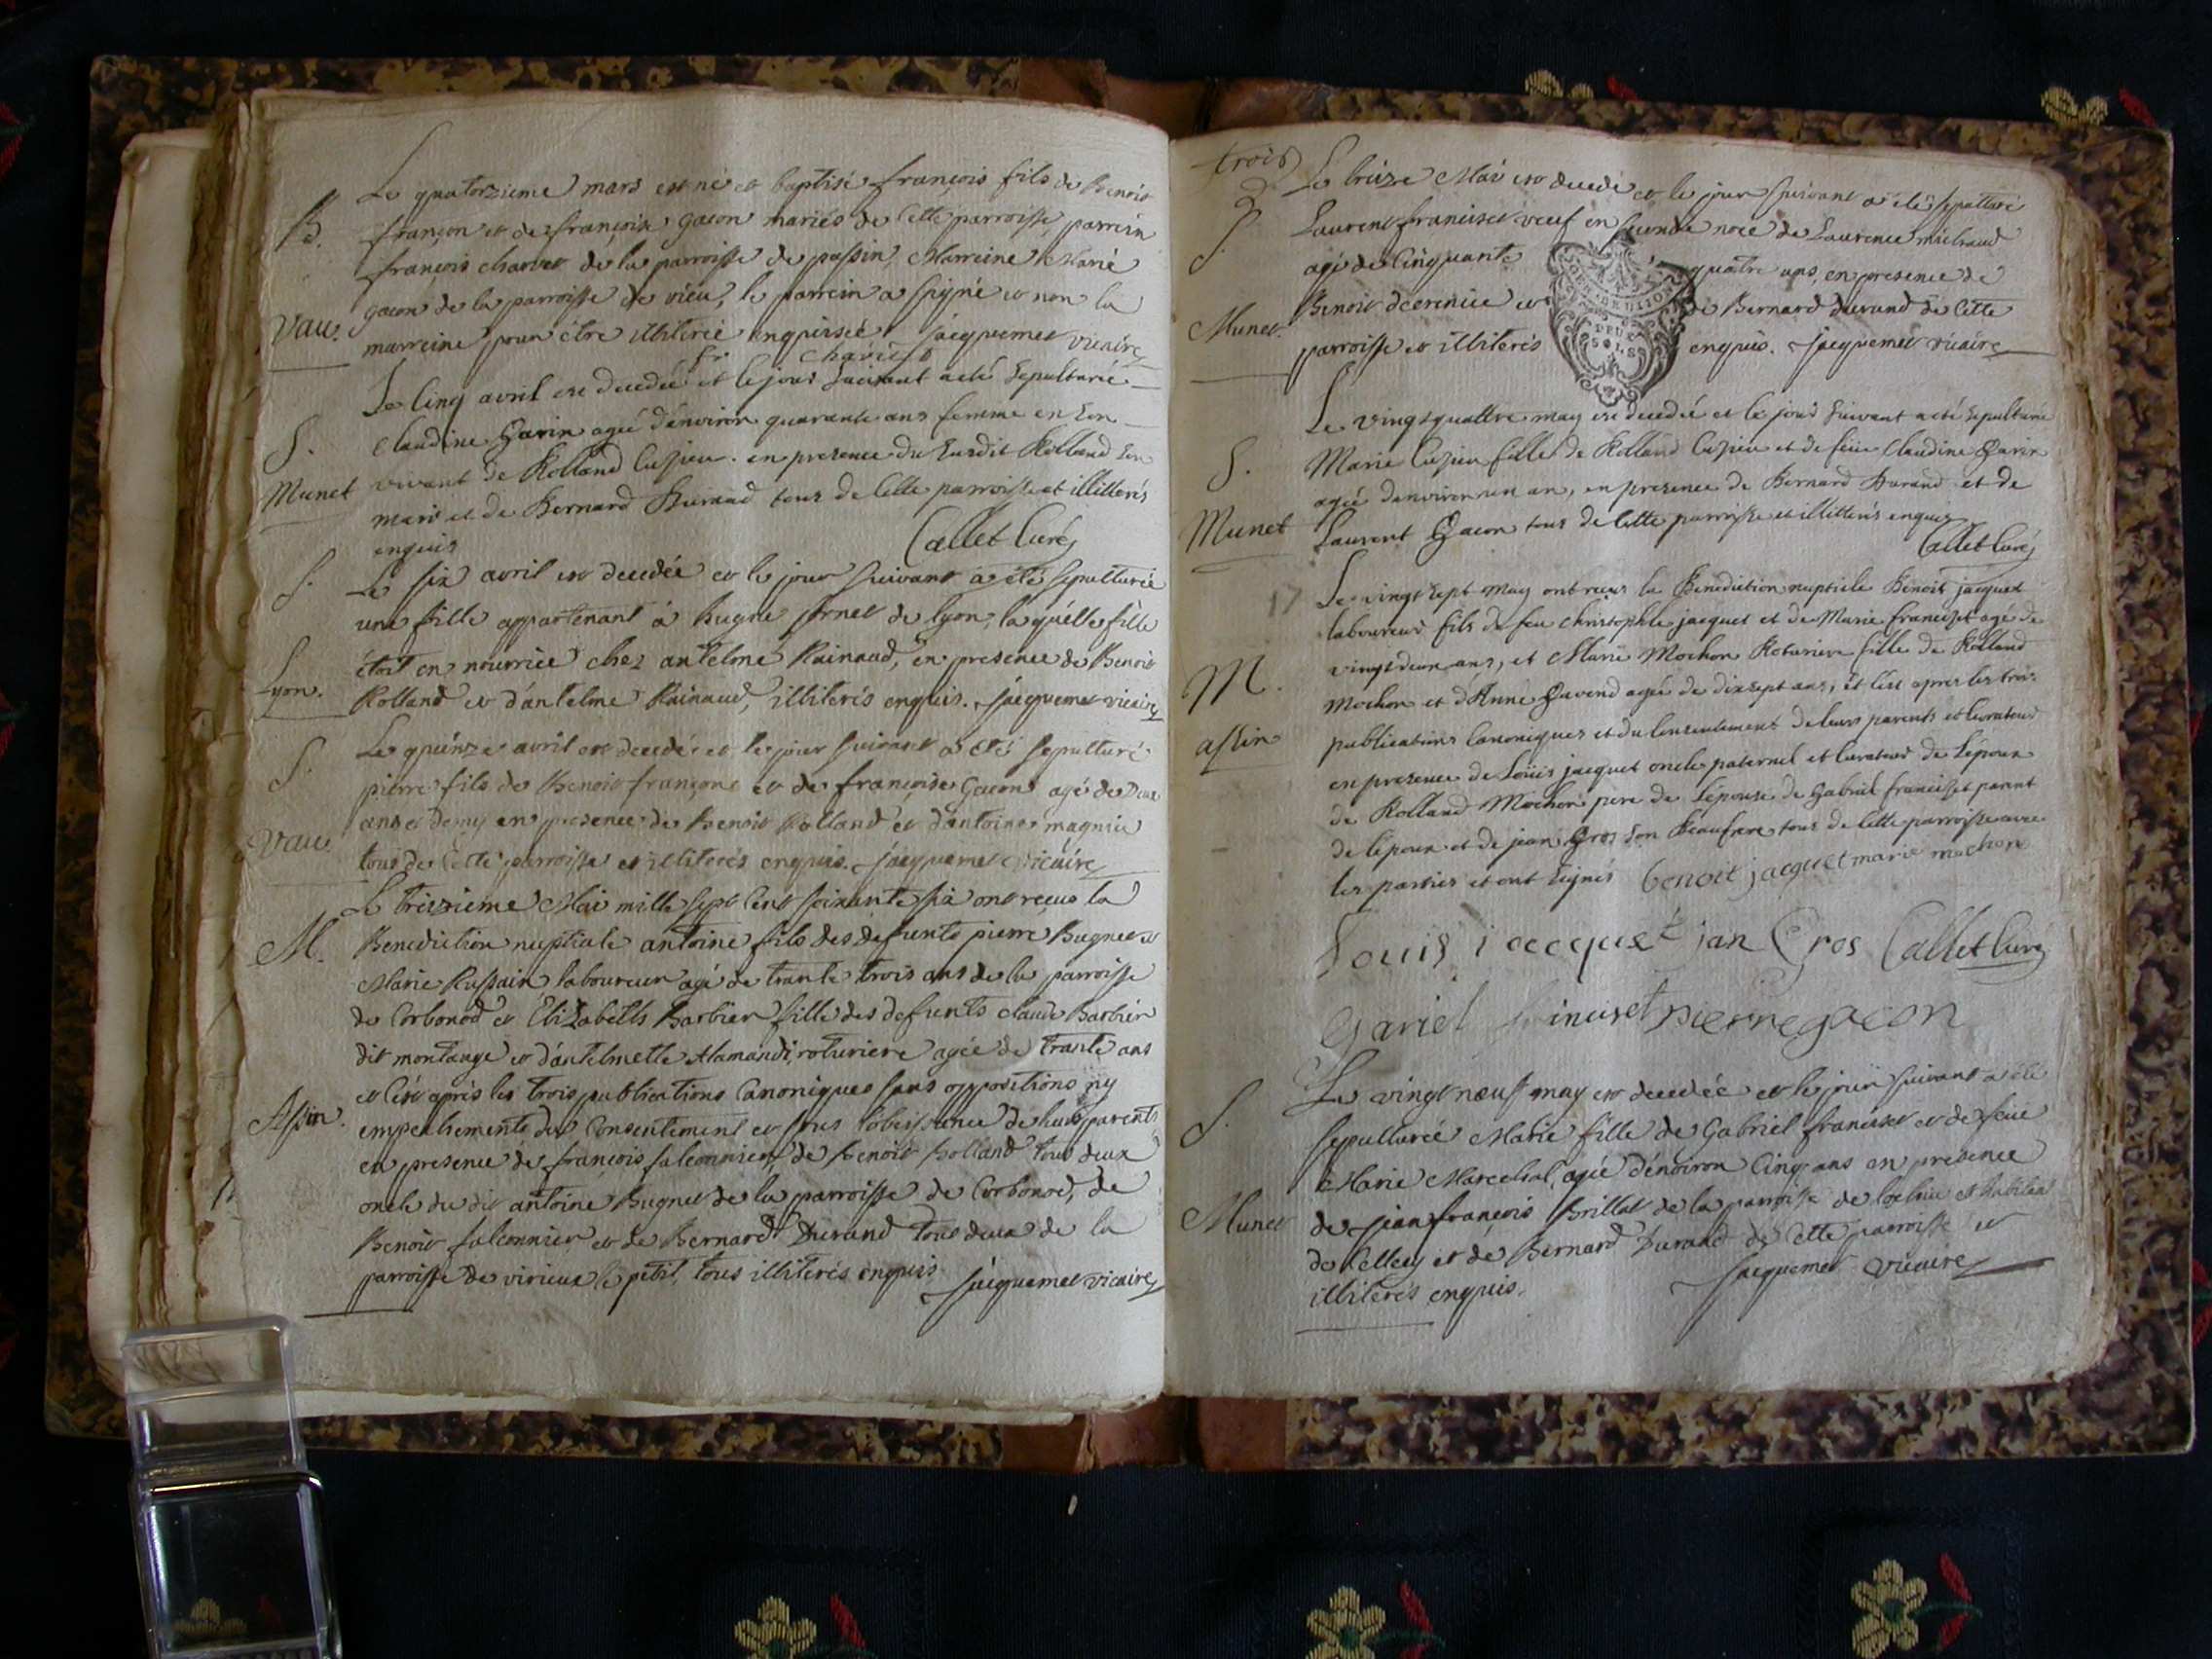 Le quatorzieme mars est né et baptisé françois fils de Benoit
B. françon et de françoise gacon mariés de cette parroisse, parrein
françois charvet de la parroisse de passin, Marreine Marie
gacon de la parroisse de vieu, le parrein a signé et non la
Vau. marreine pour être illiterée enquise jacquemet vicaire
fr charvet
Le cinq avril est decedée et le jour suivant a eté sepulturée
S. claudine Garin agée d'environ quarante ans femme en son
Munet vivant de Rolland Cusieu. en presence du susdit Rolland son
mari et de Bernard Durand tous de cette parroisse et illitterés
enquis Callet Curé
S. Le six avril est decedée et le jour suivant a été sepulturée
une fille appartenant à Hugue jornet de lyon, laquelle fille
étoit en nourrice chez antelme Rainaud, en presence de Benoit
Lyon. Rolland et d'antelme Rainaud, illiterés enquis. jacquemet vicaire
Le quinze avril est decedé et le jour suivant a été sepulturé
S. pierre fils de Benoit françon et de françoise Gacon agé de deux
ans et demy en presence de Benoit Rolland et d'antoine magnin
Vau tous de cette parroisse et illiterés enquis. jacquemet vicaire
Le treizieme Mai mille sept cent soixante six ont reçus la
M. Benediction nuptiale antoine fils des defunts pierre Bugnet et
Marie Russain laboureur agé de trante trois ans de la parroisse
de Corbonod et Elizabeth Barbier fille des defunts claude Barbier
dit montange et d'antelmette Alamandi, roturiere agée de trante ans
et c'est après les trois publications Canoniques sans oppositions ny
Assin. empechements du Consentement et sous l'obeissance de leurs parents
en presence de françois falconnier, de Benoit Rolland tous deux
oncle du dit antoine Bugnet de la parroisse de Corbonod, de
Benoit falconnier et de Bernard Durand tous deux de la
parroisse de virieux le petit, tous illiterés enquis jacquemet vicaire
trois
Le treize Mai est decedé et le jour suivant a été sepulturé
S. Laurent franciset veuf en seconde noce de Laurence michaud
agé de Cinquante quatre ans, en presence de
Munet. Benoit et de Bernard durand de cette
parroisse et illiterés enquis. jacquemet vicaire
Le vingt quattre may est decedée et le jour suivant a eté sepulturée
S. Marie Cusieu fille de Rolland Cusieu et de feüe claudine Garin
agée d'environ un an, en presence de Bernard Durand et de
Munet Laurent Gacon tous de cette parroisse et illitterés enquis
Callet Curé
17 Le vingt sept may ont reçus la Benediction nuptiele Benoit jacquet
laboureur fils de feu christophle jacquet et de Marie franciset agé de
M. vingt deux ans, et Marie Mochon Roturiere fille de Rolland
Mochon et d'Anne agée de dix sept ans, et c'est apres les trois
assin publications Canoniques et du consentement de leurs parents et curateur
en presence de Loüis jacquet oncle paternel et curateur de l'epoux
de Rolland Mochon pere de l'epouse de Gabriel franciset parent
de l'epoux et de jean Gros son Beaufrere tous de cette parroisse avec
les parties et ont signés benoit jacquet marie mochon
Louis jacquet jan Gros Callet Curé
Gariel pierre gacon
Le vingt neuf may est decedée et le jour suivant a été
S. sepulturée Marie fille de Gabriel franciset et de feüe
Marie Marechal, agée d'environ Cinq ans en presence
Munet de jean françois Brillat de la parroisse de lochieu et habitant
de et de Bernard Durand de cette parroisse et
illiterés enquis. jacquemet vicaire